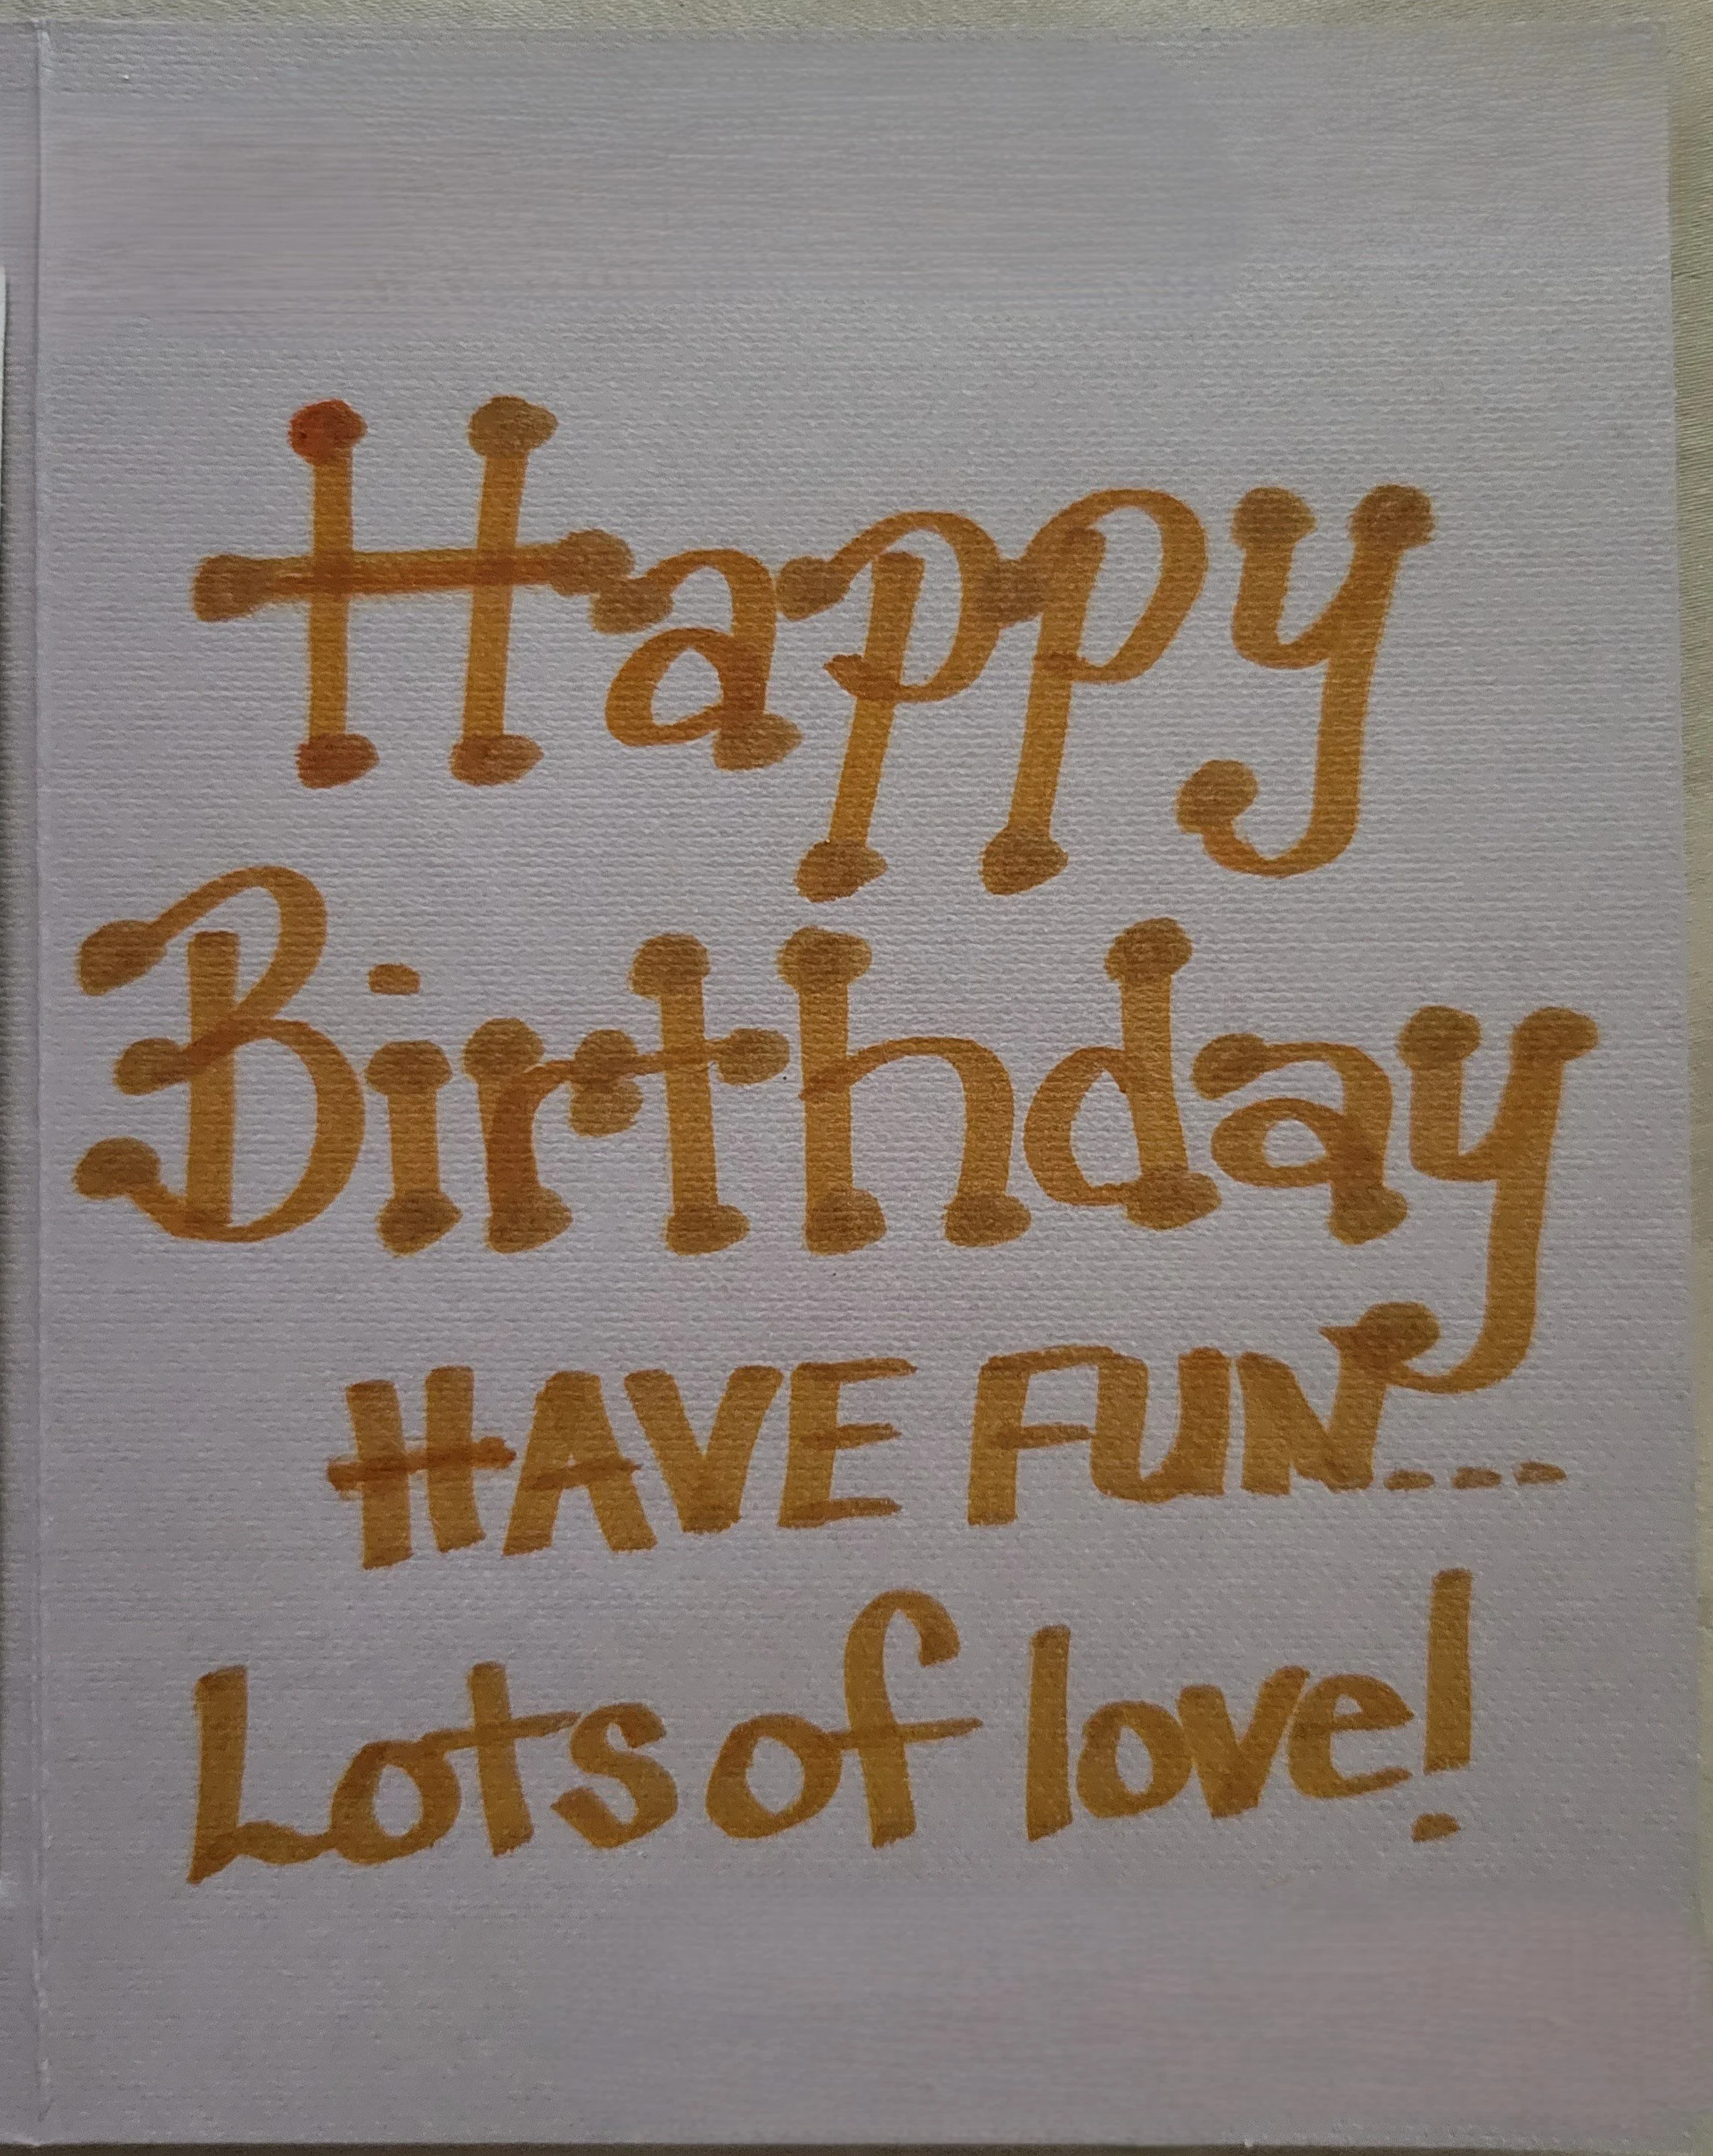 Happy
Birthday
HAVE FUN...
Lots of love!